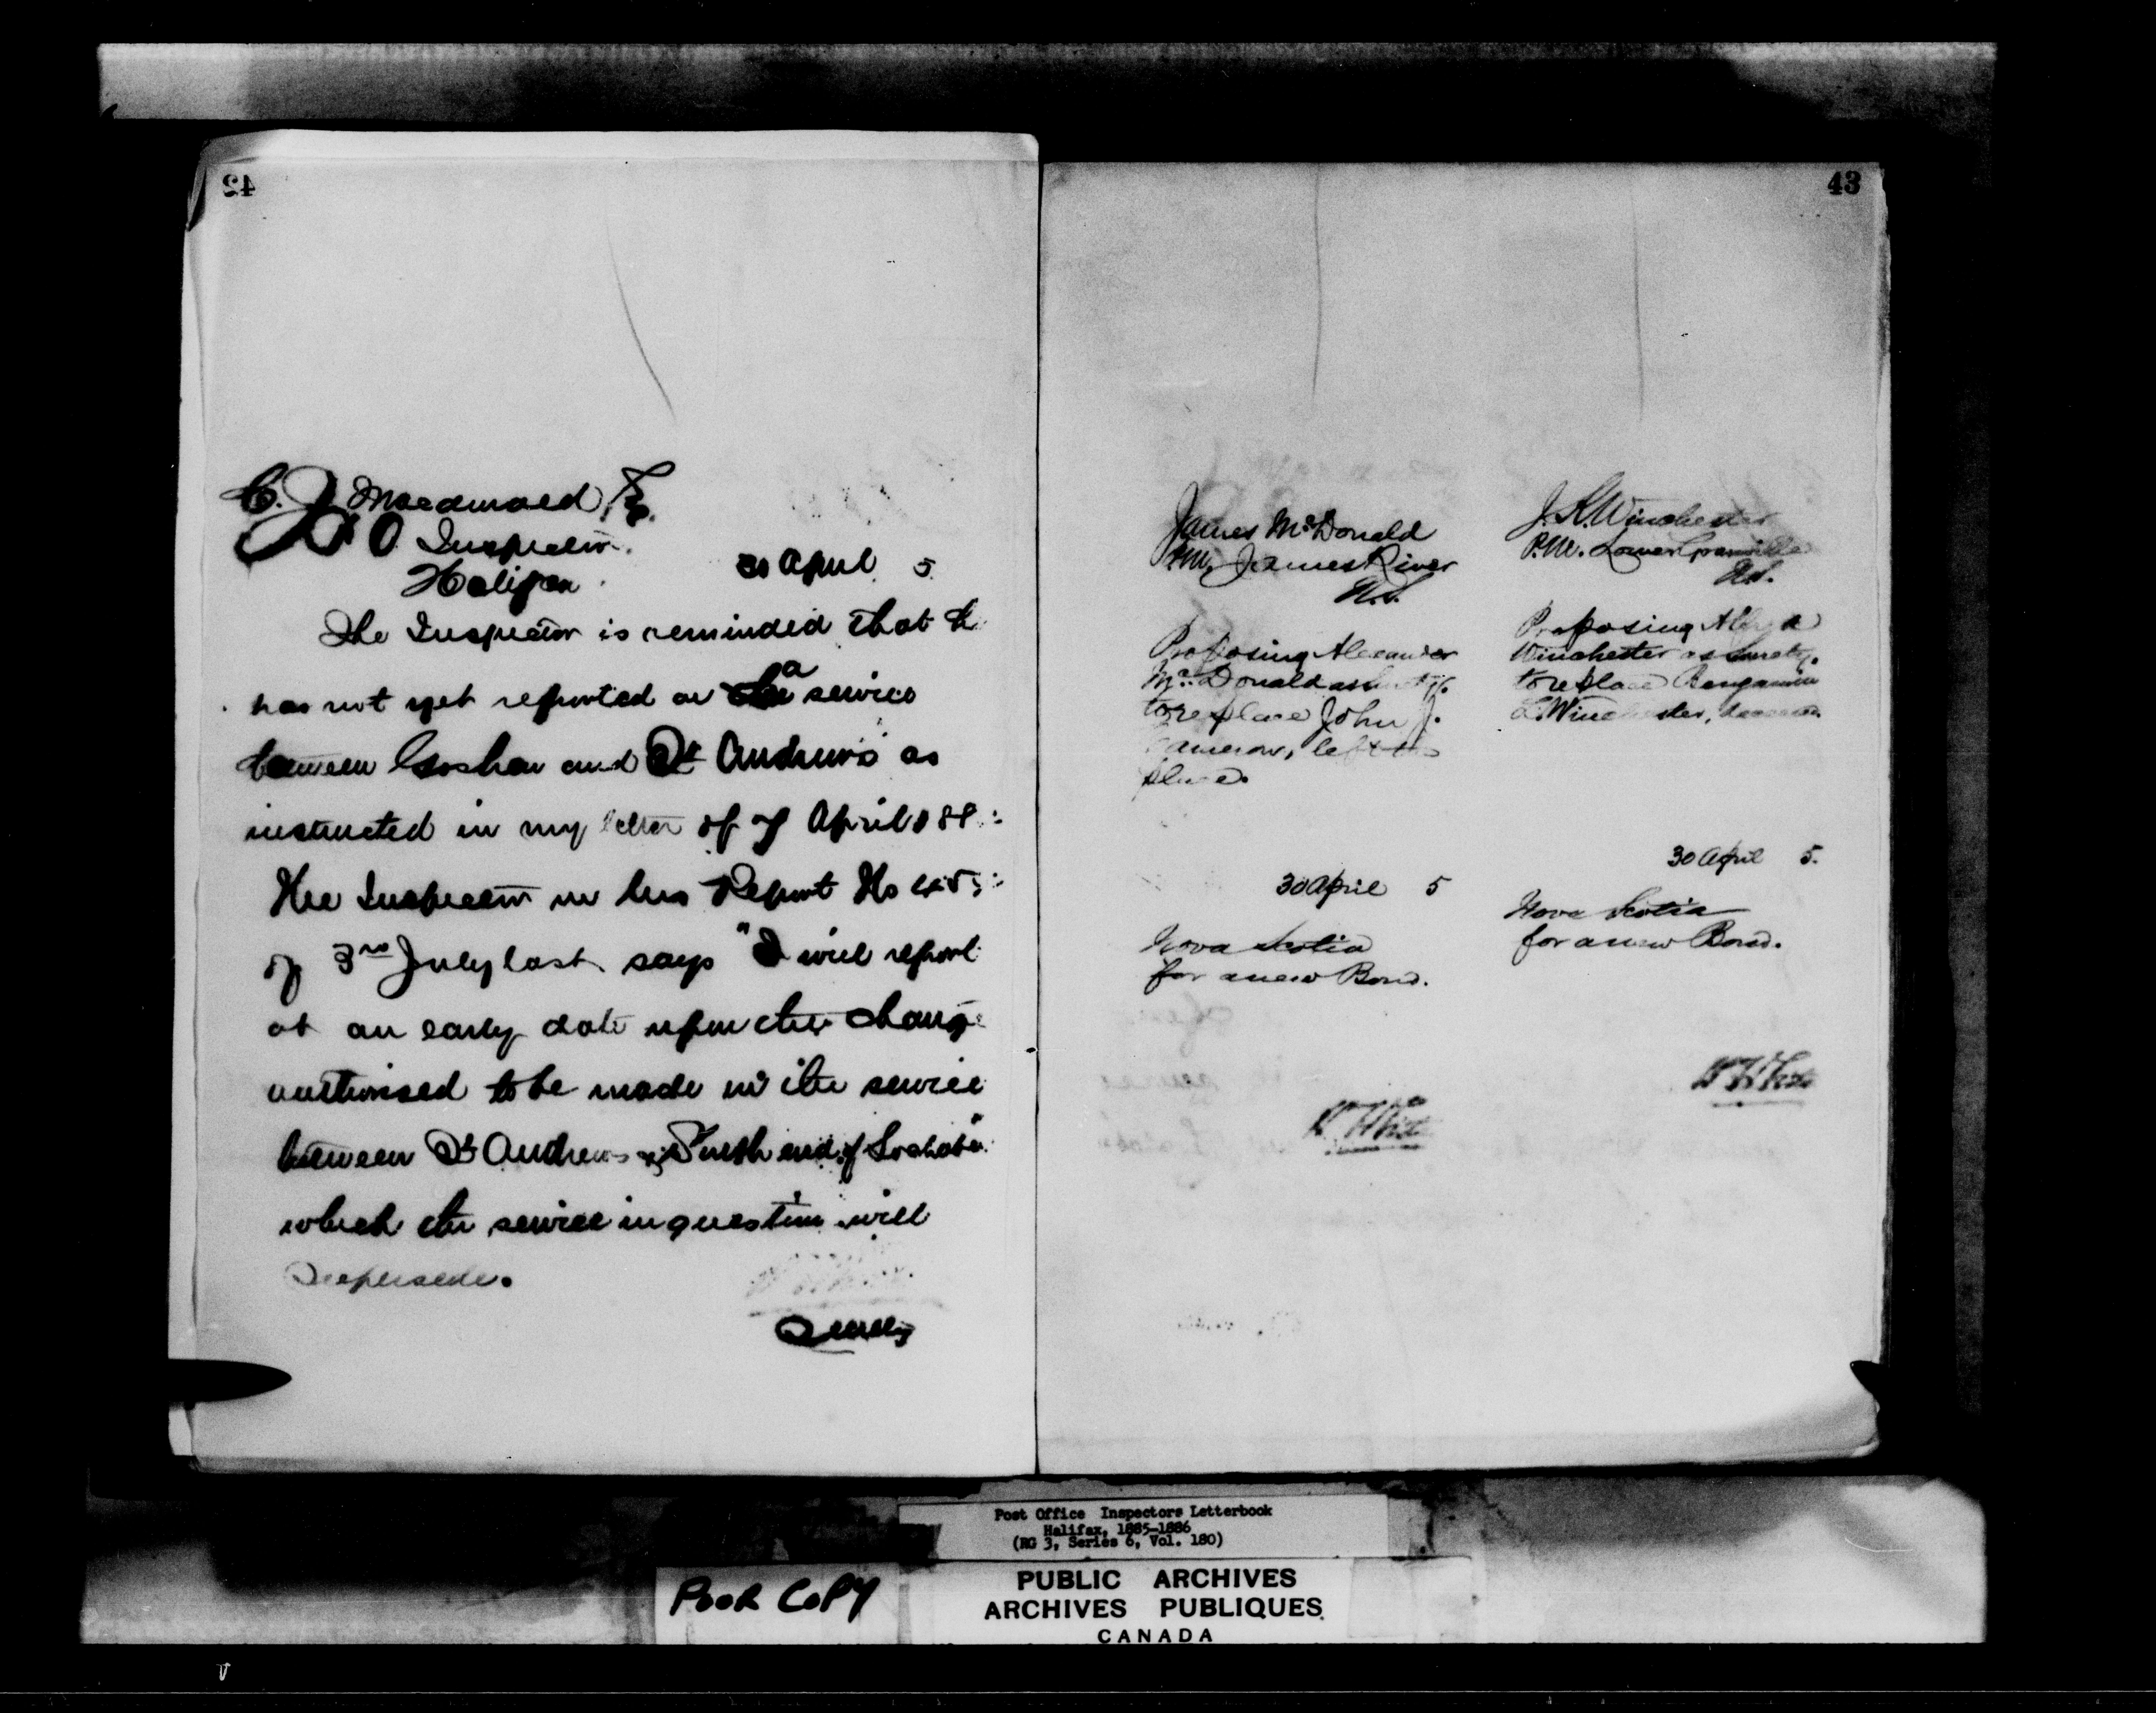 42
C. J. Macdonald Esq.
P O Inspector
Halifax
30 April 5
The Inspector is reminded that he
has not yet reported on a service
between Goshen and St Andrews as
instructed in my letter of 7 April 188
The Inspector in his Report No
of 3rd July last says "I will report
at an early date upon the change
authorised to be made in the service
between St Andrews & South end of Lochaber"
which the service in question will
supersede.
43
James McDonald
P.M. James River
N.S.
Proposing Alexander
McDonald as surety
to replace John J.
Cameron, left the
place.
30 April 5
Nova Scotia
for a new Bond.
W H
J. K. Winchester
P.M. Lower Granville
N.S.
Proposing
Winchester as surety,
to replace Benjamin
L. Winchester, deceased.
30 April 5.
Nova Scotia
for a new Bond.
W H
Post Office Inspectors Letterbook
Halifax, 1885-1886
(RG 3, Series 6, Vol. 180)
POOR COPY
PUBLIC ARCHIVES
ARCHIVES PUBLIQUES
CANADA